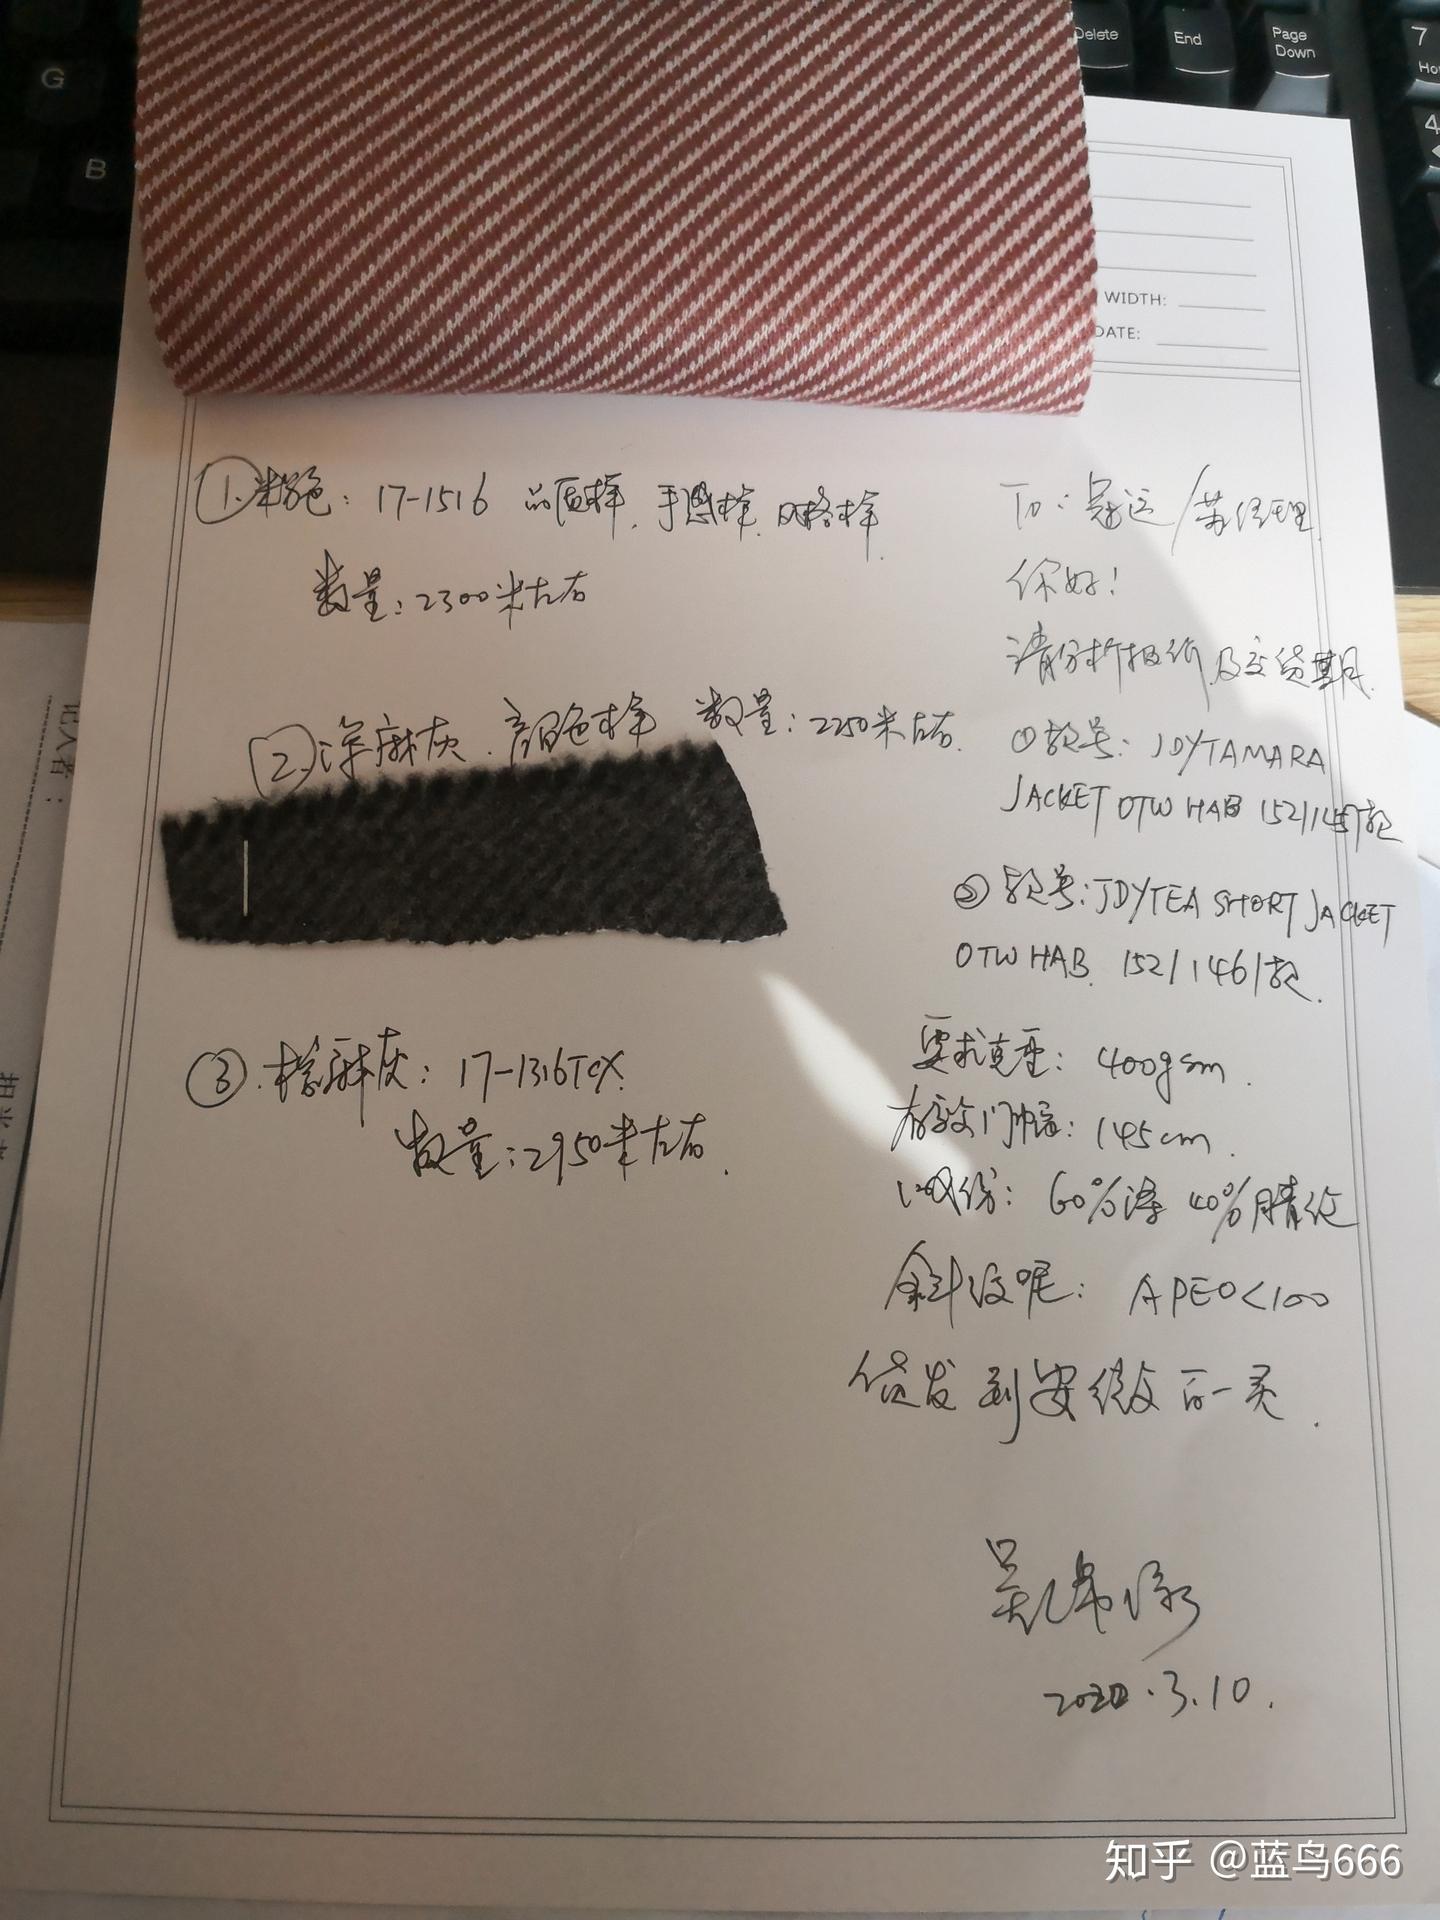 G
B
Delete
End
Page
Down
7
4
WIDTH:
DATE:
① 粉色: 17-1516 品质样, 手感样, 风格样
数量: 2300米左右
② 深麻灰, 颜色样 数量: 2250米左右.
③. 棕麻灰: 17-1316TCX
数量: 2950米左右.
To: 冠运/黄经理
你好!
请分析报价及交货期.
①款号: JDYTAMARA
JACKET OTW HAB 1521145/款
②款号: JDYTEA SHORT JACKET
OTW HAB. 1521146/款.
要求克重: 400gsm.
有效门幅: 145cm.
成份: 60%涤 40%腈纶
斜纹呢: APEO<100
货发到安徽
2020.3.10.
记入者:
知乎 @蓝鸟666